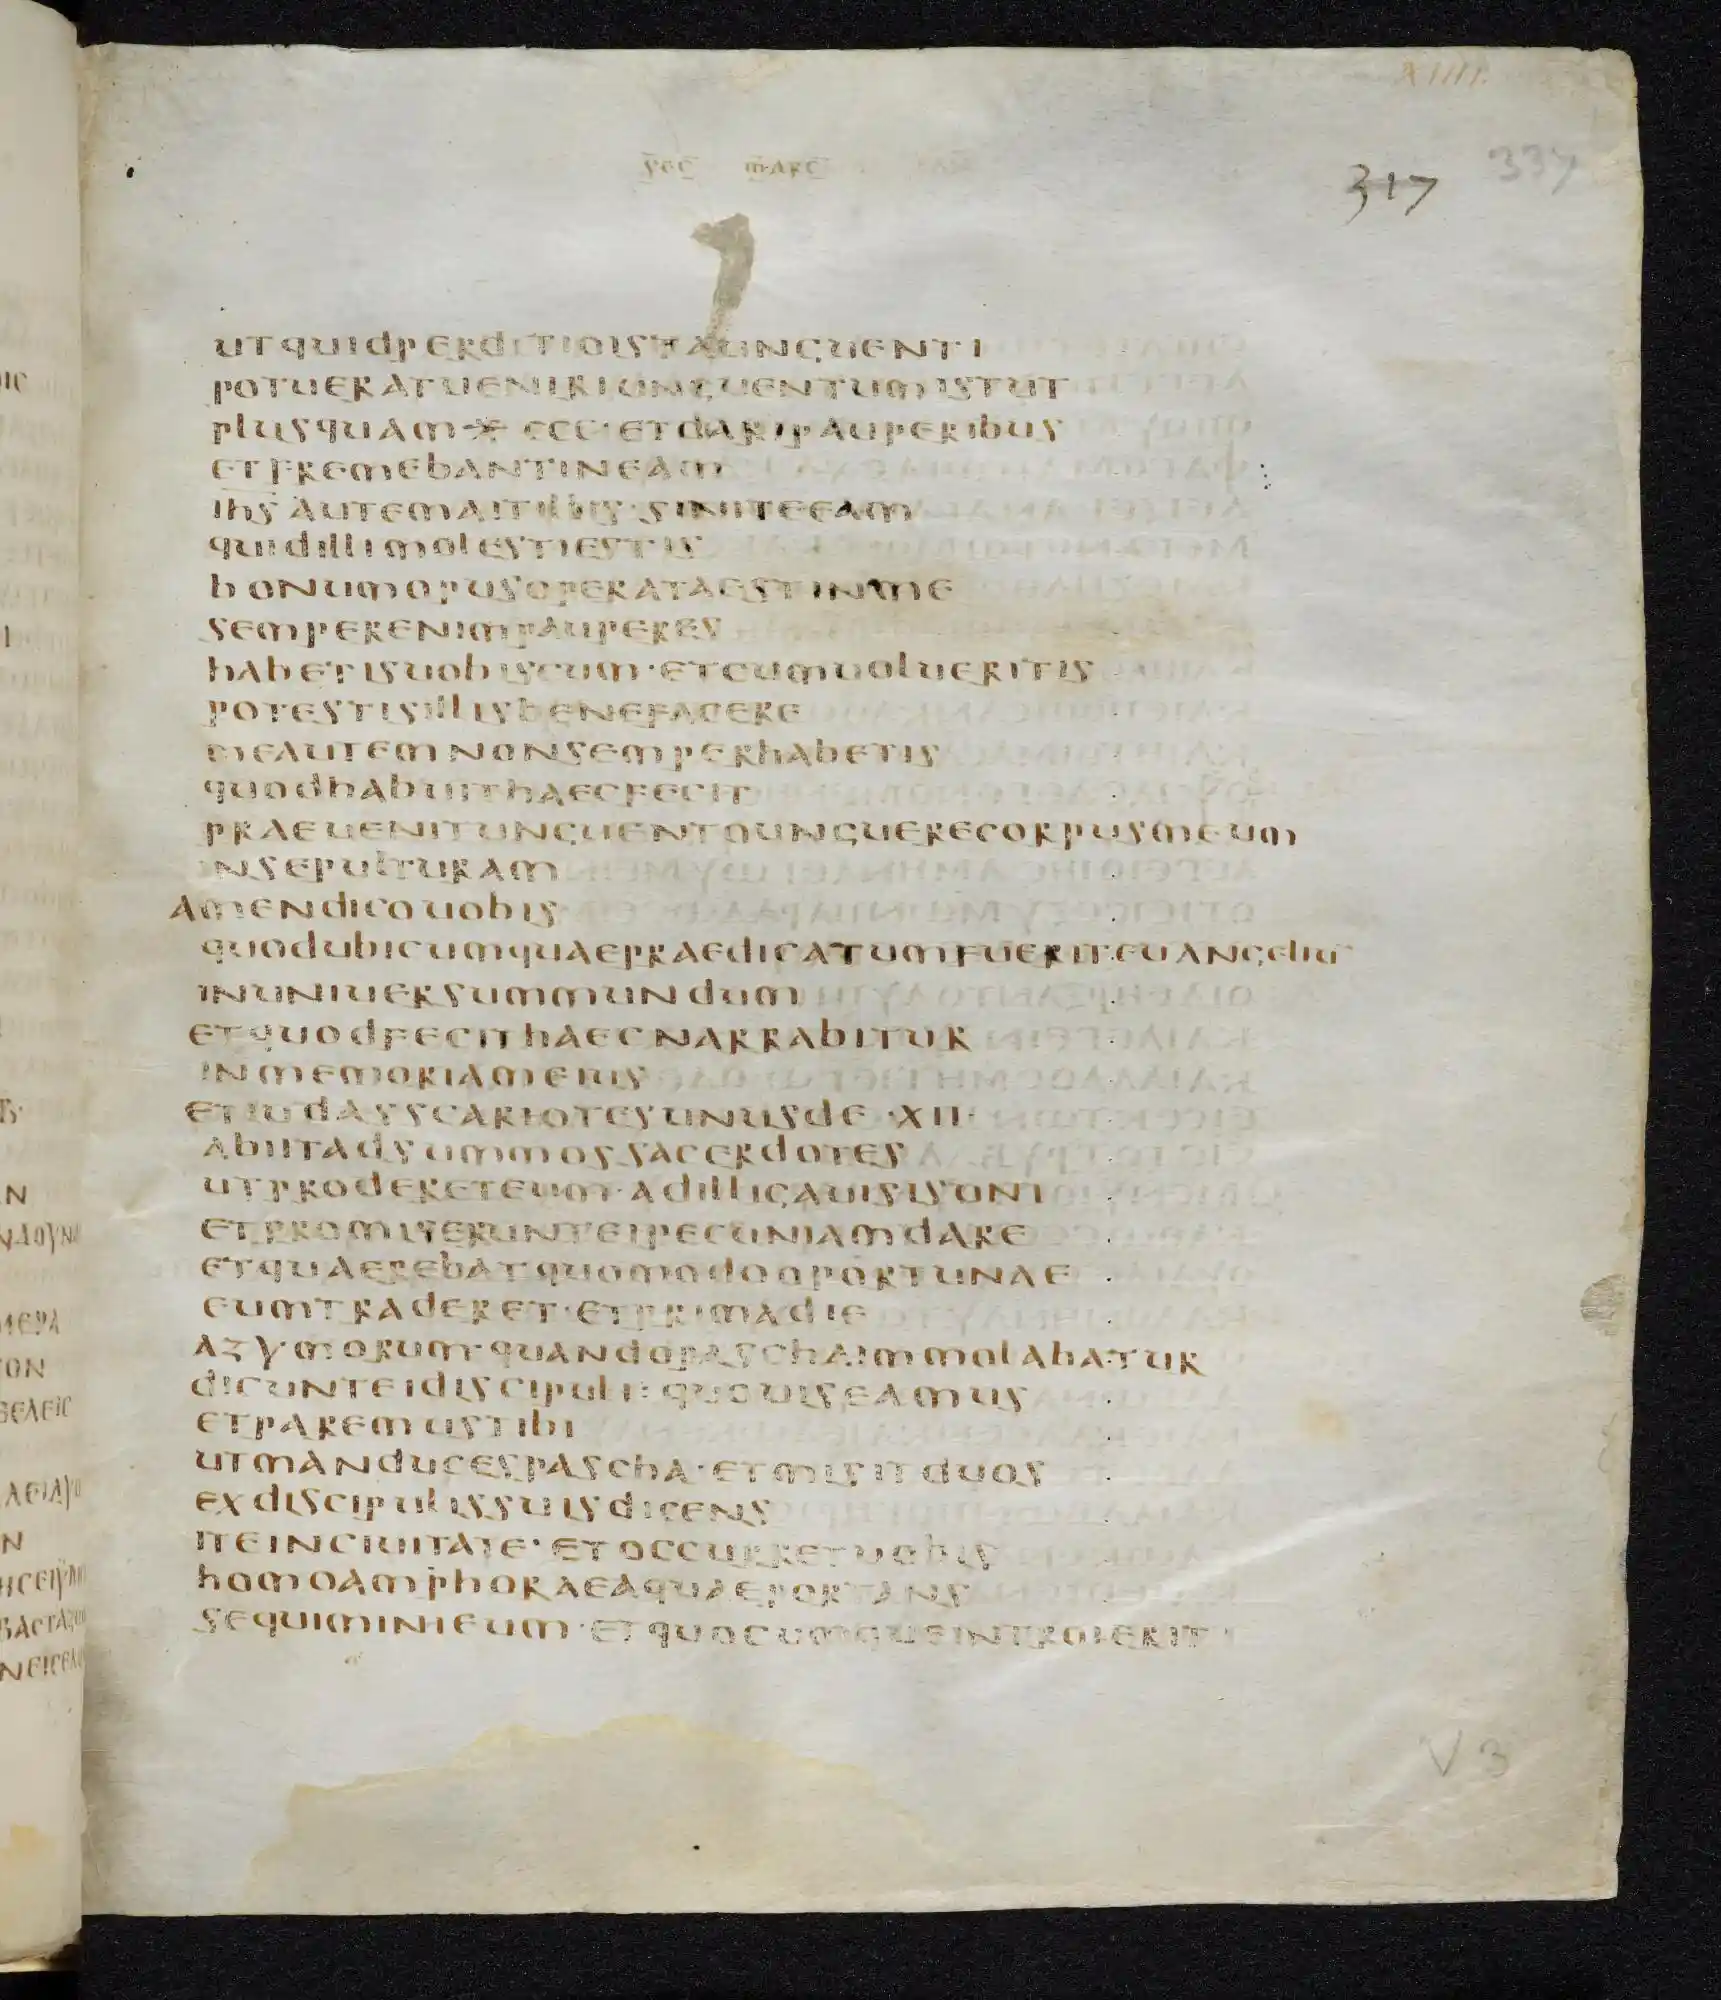 XIIII.
sec marc
317 337
utquidperditioistaunguenti
potueratueniriunguentumistut
plusquam ✳ ccc · etdaripauperibus
etfremebantineam
ihs autemaitillis · siniteeam
quidillimolestiestis
bonumopusoperataestinme
semperenimpauperes
habetisuobiscum · etcumuolueritis
potestisillisbenefacere
meautemnonsemperhabetis
quodhabuithaecfecit
praeuenitunguentounguerecorpusmeum
insepulturam
amendicouobis
quodubicumquaepraedicatumfueriteuangeliū
inuniuersummundum
etquodfecithaecnarrabitur
inmemoriameius
etiudasscariotesunusde · xii ·
abiitadsummossacerdotes
utprodereteum · adilligauisisuni
etpromiserunteipecuniamdare
etquaerebatquomodooportunae
eumtraderet · etprimadie
azymorum · quandopaschaimmolabatur
dicunteidiscipuli : quouiseamus
etparemustibi
utmanducespascha · etmisitduos
exdiscipulissuisdicens
iteinciuitate · etoccurretuobis
homoamphoraeaquaeportans
sequiminieum · etquocumqueintroierit
V 3